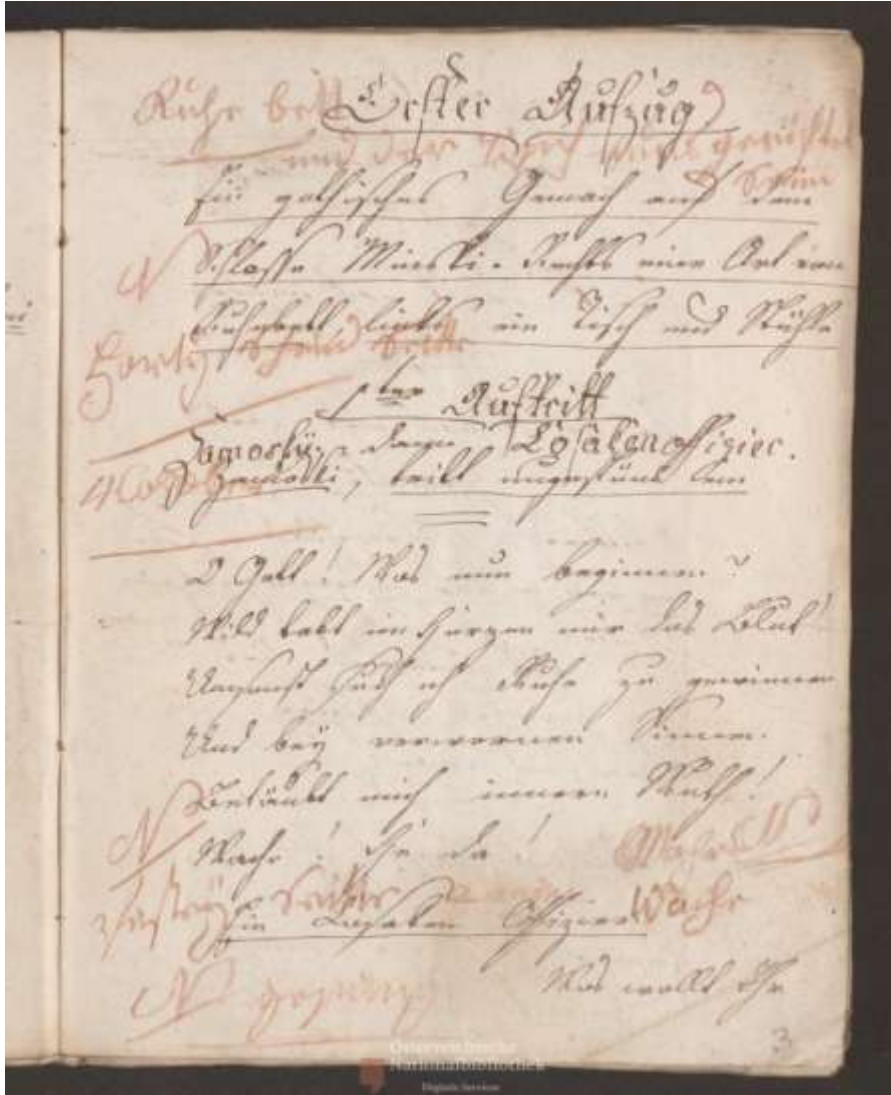 Ruhe bett
Erster Aufzug
und der Tisch
Ein gothisches Gemach auf dem
Schlosse Minski. Rechts eine Art von
Ruhebett, links ein Tisch und Stühle
1ter Auftritt
Zamosky, dann Kosakenoffizier.
Zamoski, tritt ungestüm ein
O Gott! Was nun beginnen?
Wild tobt im Herzen mir das Blut!
Umsonst such ich Ruhe zu gewinnen
Und bey verworrnen Sinnen
Betäubt mich innere Wuth!
Wache! He da!
Wache
Ein Kosaken Offizier
Was wollt Ihr
3
Österreichische
Nationalbibliothek
Digitale Services